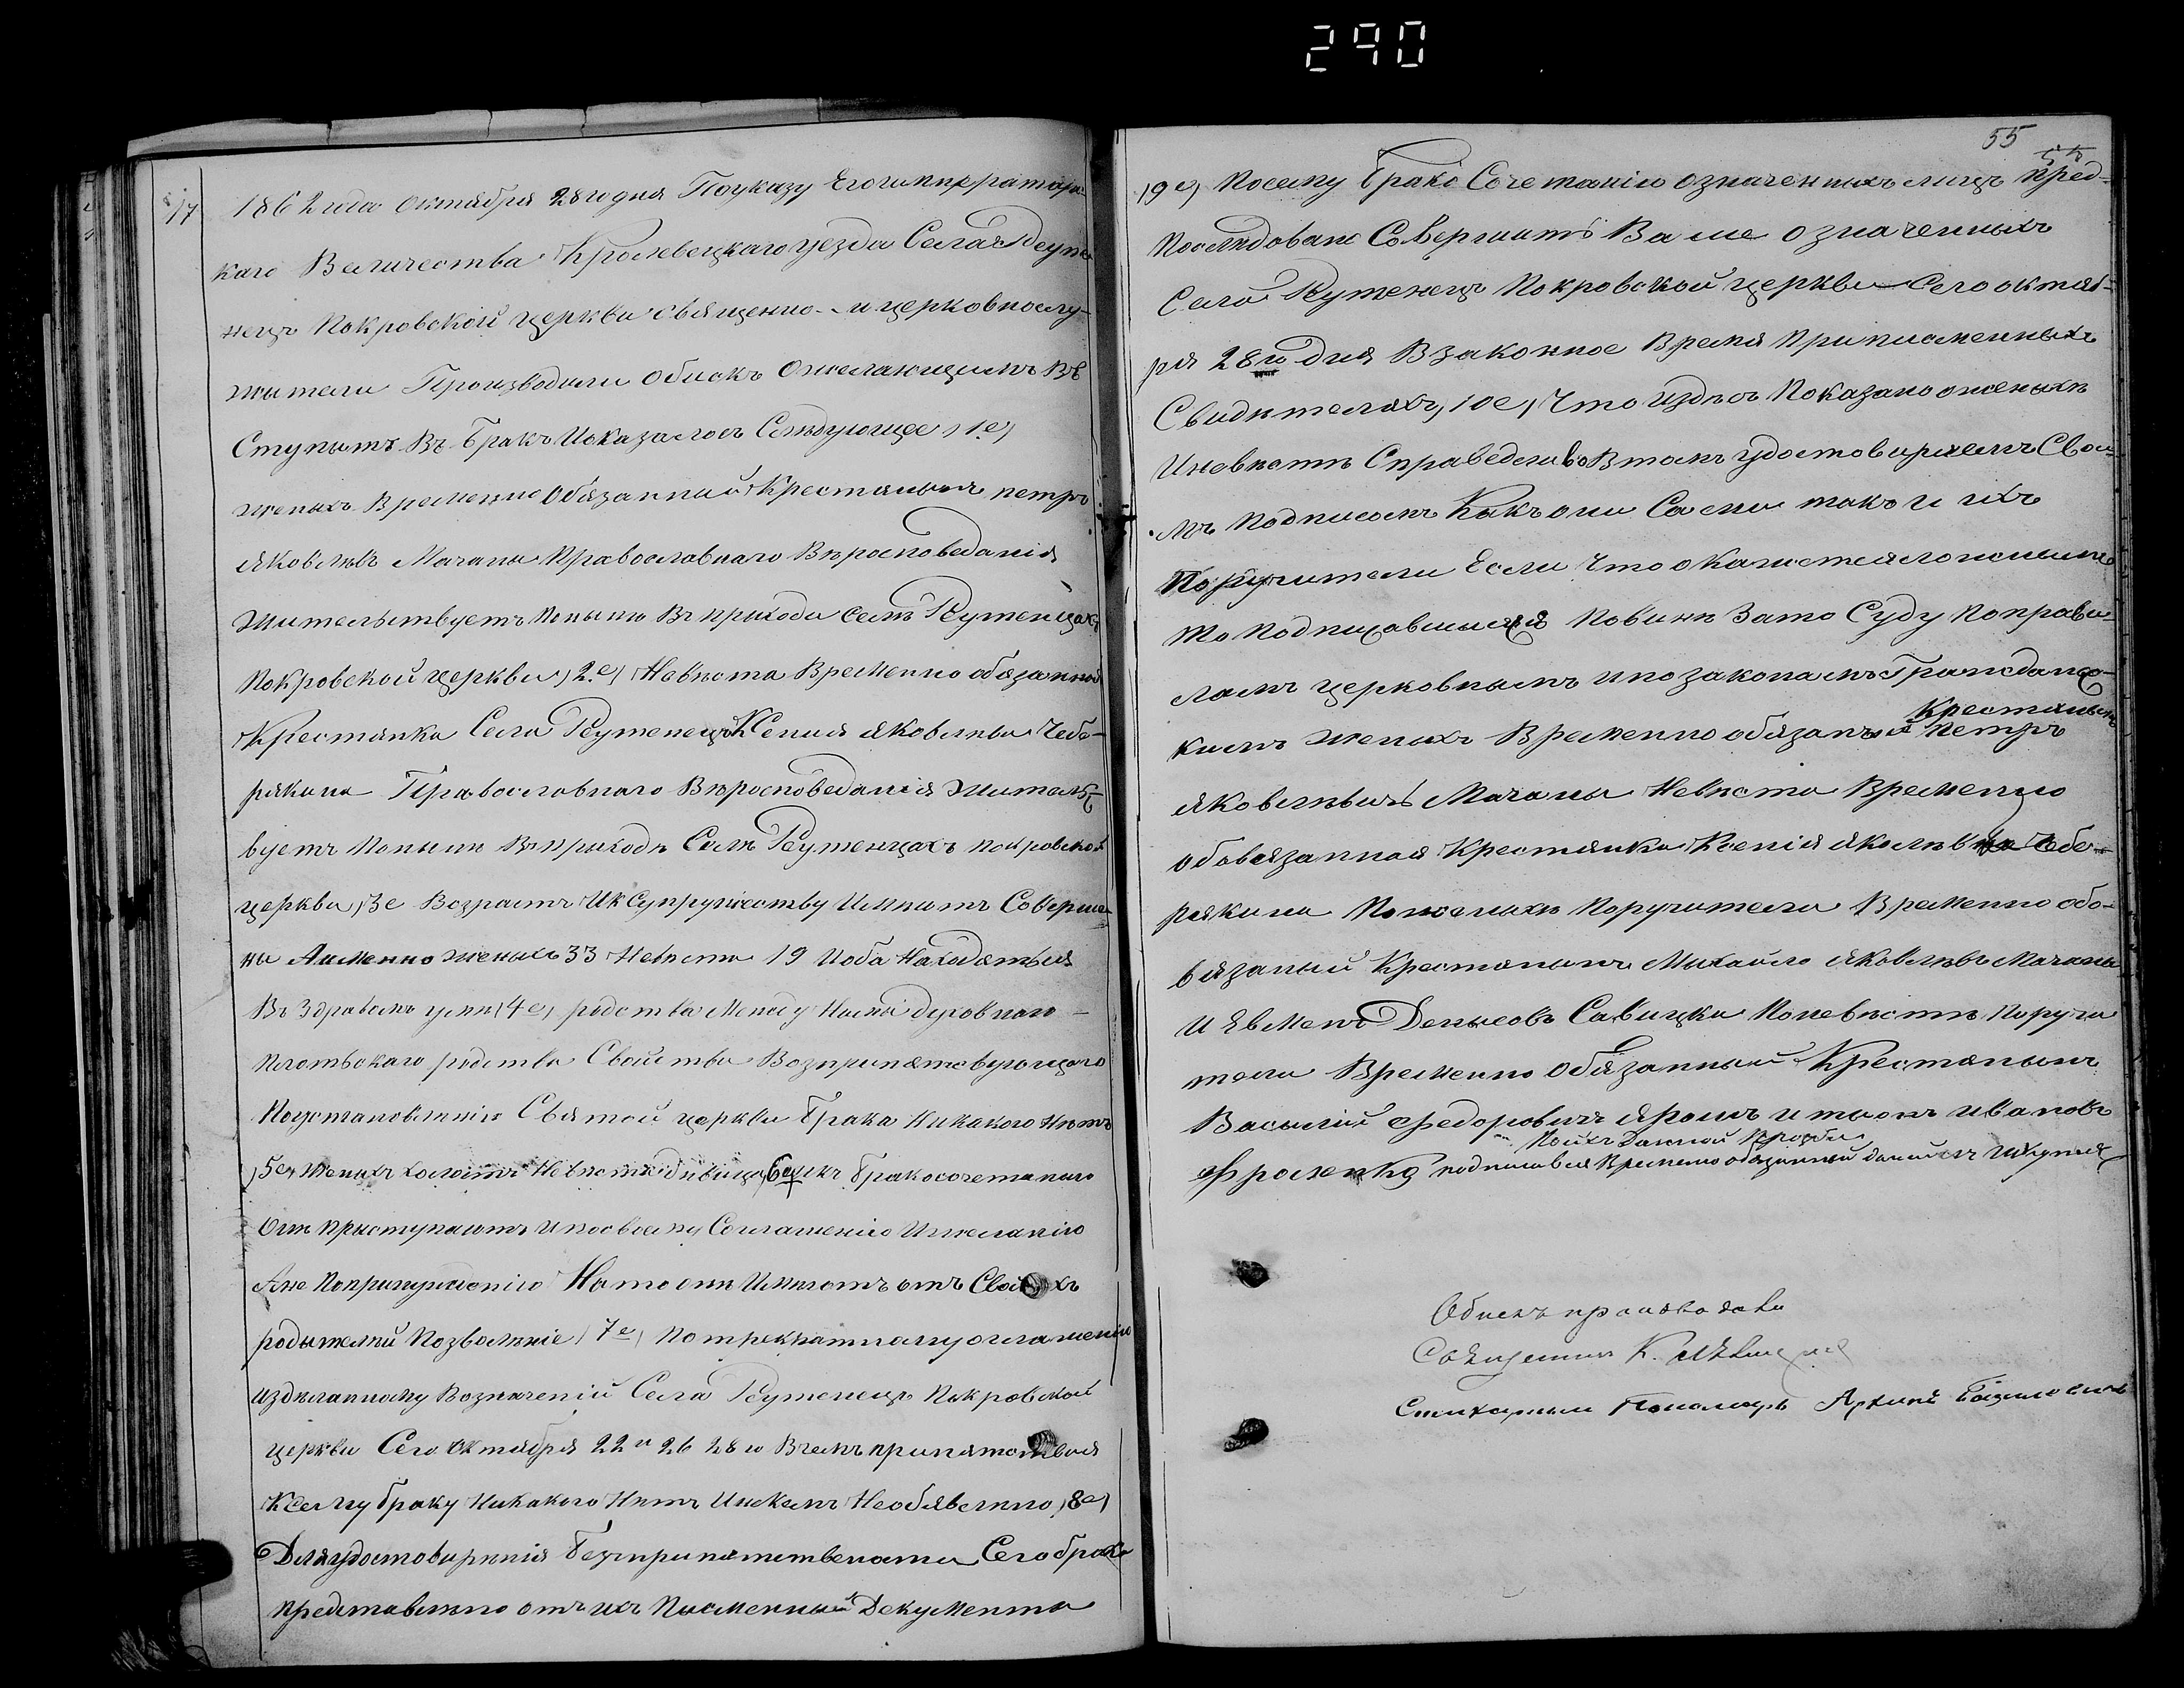 290
17
1862 года октября 28го дня По указу Его импираторс-
каго Величества Кролевецкаго уезда Села Реуте
нецъ Покровской церкви священно- и церковнослу-
жители Производили обискъ ожелающимъ Въ
Ступыть Въ Бракъ Иоказалось Слѣдующее, 1е,
женыхъ Временно Обязанный Крестянынъ петръ
яковлѣвъ Мачаны Православнаго Вѣросповеданія
Жительствуетъ Поныню Въ приходи селѣ Реутенцахъ
Покровской церкви, 2е, Невѣста Временно обязанной
Крестянка Села Реутенецъ Ксения яковлѣва Чебе-
рякина Православнаго Вѣросповеданія Жительст
вуетъ Понынѣ Въ прыходѣ Селѣ Реутенцахъ покровской
церкви, 3е Возрастъ ИкСупружеству Имѣютъ Соверше
ны Аименно женыхъ 33 Невѣста 19 Иоба Находятъся
Въ Здравомъ умѣ, 4е, родства Между Нымы духовнаго
Плотьскаго родства Свойства Возпрпятсвующаго
Поустановлѣнію Святой церкви брака Никакого Нѣтъ
, 5е, Женыхъ холостъ Невѣста дѣвица, 6е, икъ бракосочетанию
Онѣ прыступаютъ ипосвоему Соглашенію Ижеланію
Ане Попринуждѣнію На то они Имѣютъ отъ Своихъ
родытелѣй Позволѣніе, 7е, По трекратному оглашенію
издѣланному Возначеній Села Реутенецъ Покровской
церкви Сего Октября 22 и 26 28го Вчемъ припятствия
Ксему браку Никакого Нѣтъ Инекемъ Необявлѣно, 8е,
Дляудостовирѣнія безприпятственаты Сего брака
представлѣно отъ ихъ Писменный Декумента
55
, 9е, Посему Брако Сочетанію означенныхъ лицъ Пред-
Послѣдовано Совершить Ваше означенныхъ
Села Реутенецъ Покровской церкви Сего октяб-
ря 28го Дня Взаконное Время Приписменныхъ
Свидѣтеляхъ, 10е, Что издѣсь Показано оженыхѣ
Иневѣстѣ Справедливо Втомъ удостовиряемъ Свои-
мъ Подписомъ Какъ они Сами такъ и ихъ
Поручители Если Что окажется ложними
то Подписавшыися Повинѣ Зато Суду Поправи-
ламъ церковнымъ ипозаконамъ Гражданс-
кимъ женыхъ Временно обязаный Крестянынъ Петръ
яковлѣвичъ Мачаны Невѣста Временно
обовязанная Крестянка Ксенія яковлѣвна Чебе-
рякина Поженыхѣ Поручители Временно обо-
вязаный Крестянынъ Мыхайло яковлѣвъ Мачаны
И Денысовъ Савицки Поневѣстѣ Поручи
тели Временно Обязанный Крестянынъ
Василій Федоровичъ ивановъ
Подписався Временно обязанный
Обискъ производили
Священникъ К.
Стихарный Пономарь